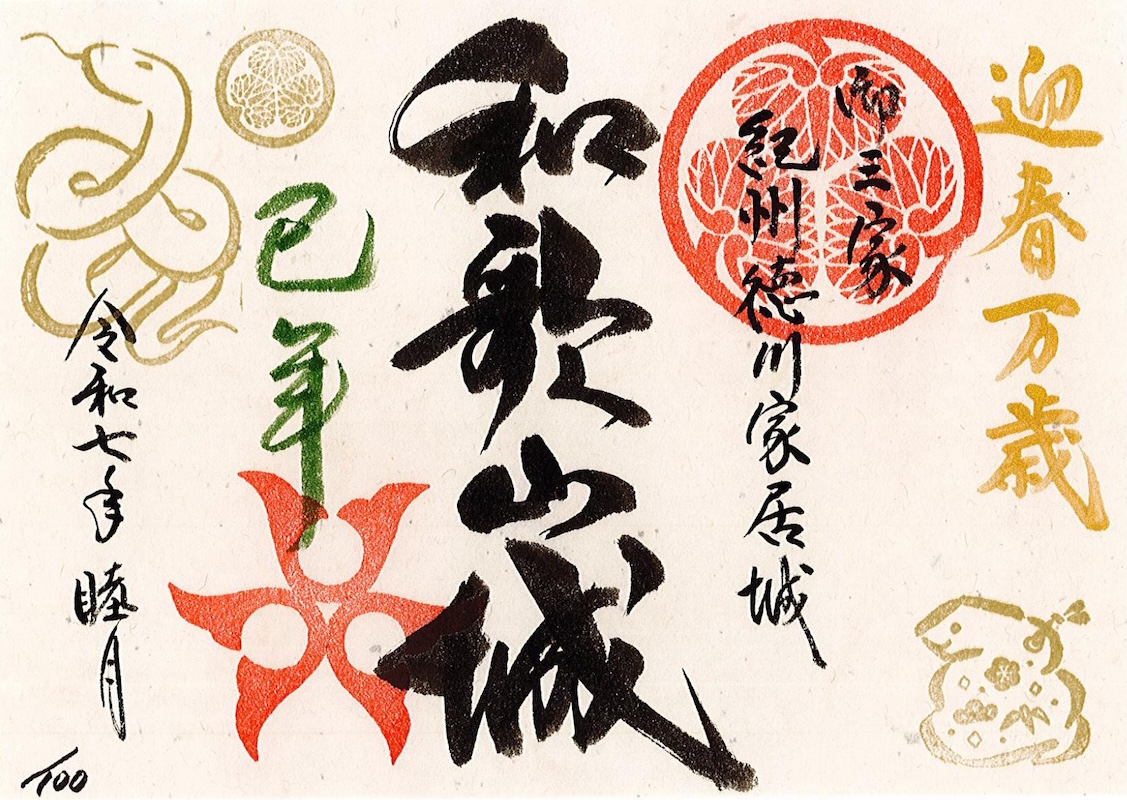 迎春万歳
御三家
紀州徳川家居城
和歌山城
巳年
令和七年 睦月
/100